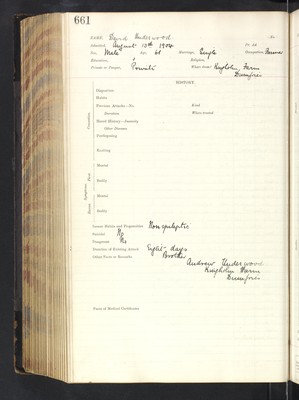 661
NAME, David Underwood No.
Admitted, August 13th 1904 Fr. 24
Sex, Male Age, 61 Marriage, Single Occupation, Farmer
Education, Religion,
Private or Pauper, Private Where from? Farm
Dumfries
HISTORY
Disposition
Habits
Previous Attacks—No. Kind
Duration Where treated
Mental History—Insanity
Other Diseases
Predisposing
Exciting
Mental
Bodily
Mental
Bodily
Causation
Symptoms
First
Recent
Causal Habits and Propensities Non epileptic
Suicidal No
Dangerous No
Duration of Existing Attack Eight days
Other Facts or Remarks Brother
Andrew Underwood
Farm
Dumfries
Facts of Medical Certificates